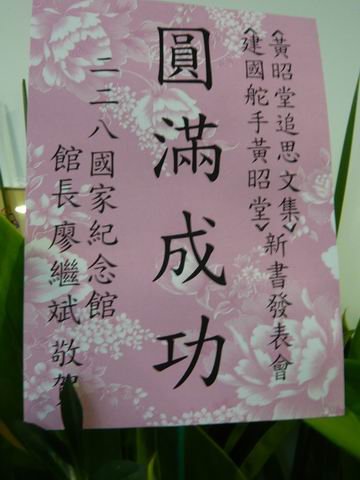 《黃昭堂追思文集》
《建國舵手黃昭堂》新書發表會
圓滿成功
二二八國家紀念館
館長廖繼斌 敬賀